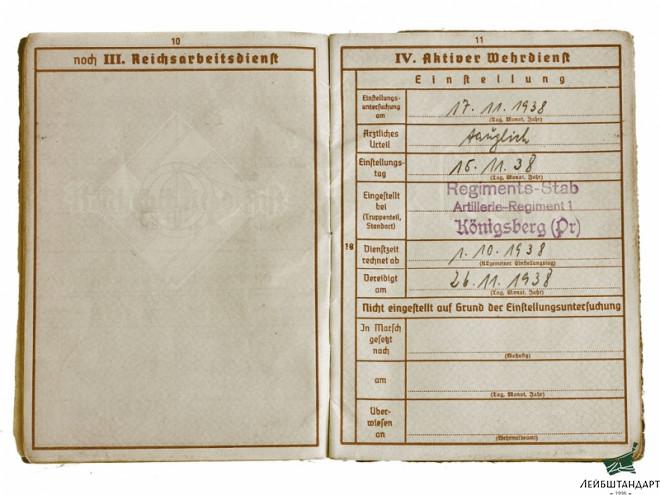 10
noch III. Reichsarbeitsdienst
11
IV. Aktiver Wehrdienst
Einstellung
Einstellungs-
untersuchung
am
17. 11. 1938
(Tag, Monat, Jahr)
Ärztliches
Urteil
tauglich
Einstellungs-
tag
15. 11. 38
(Tag, Monat, Jahr)
Eingestellt
bei
(Truppenteil,
Standort)
Regiments-Stab
Artillerie-Regiment 1
Königsberg (Pr)
18
Dienstzeit
rechnet ab
1. 10. 1938
(Allgemeiner Einstellungstag)
Vereidigt
am
26. 11. 1938
(Tag, Monat, Jahr)
Nicht eingestellt auf Grund der Einstellungsuntersuchung
In Marsch
gesetzt
nach
(Wohnsitz)
am
(Tag, Monat, Jahr)
Über-
wiesen
an
(Wehrmeldeamt)
ЛЕЙБШТАНДАРТ